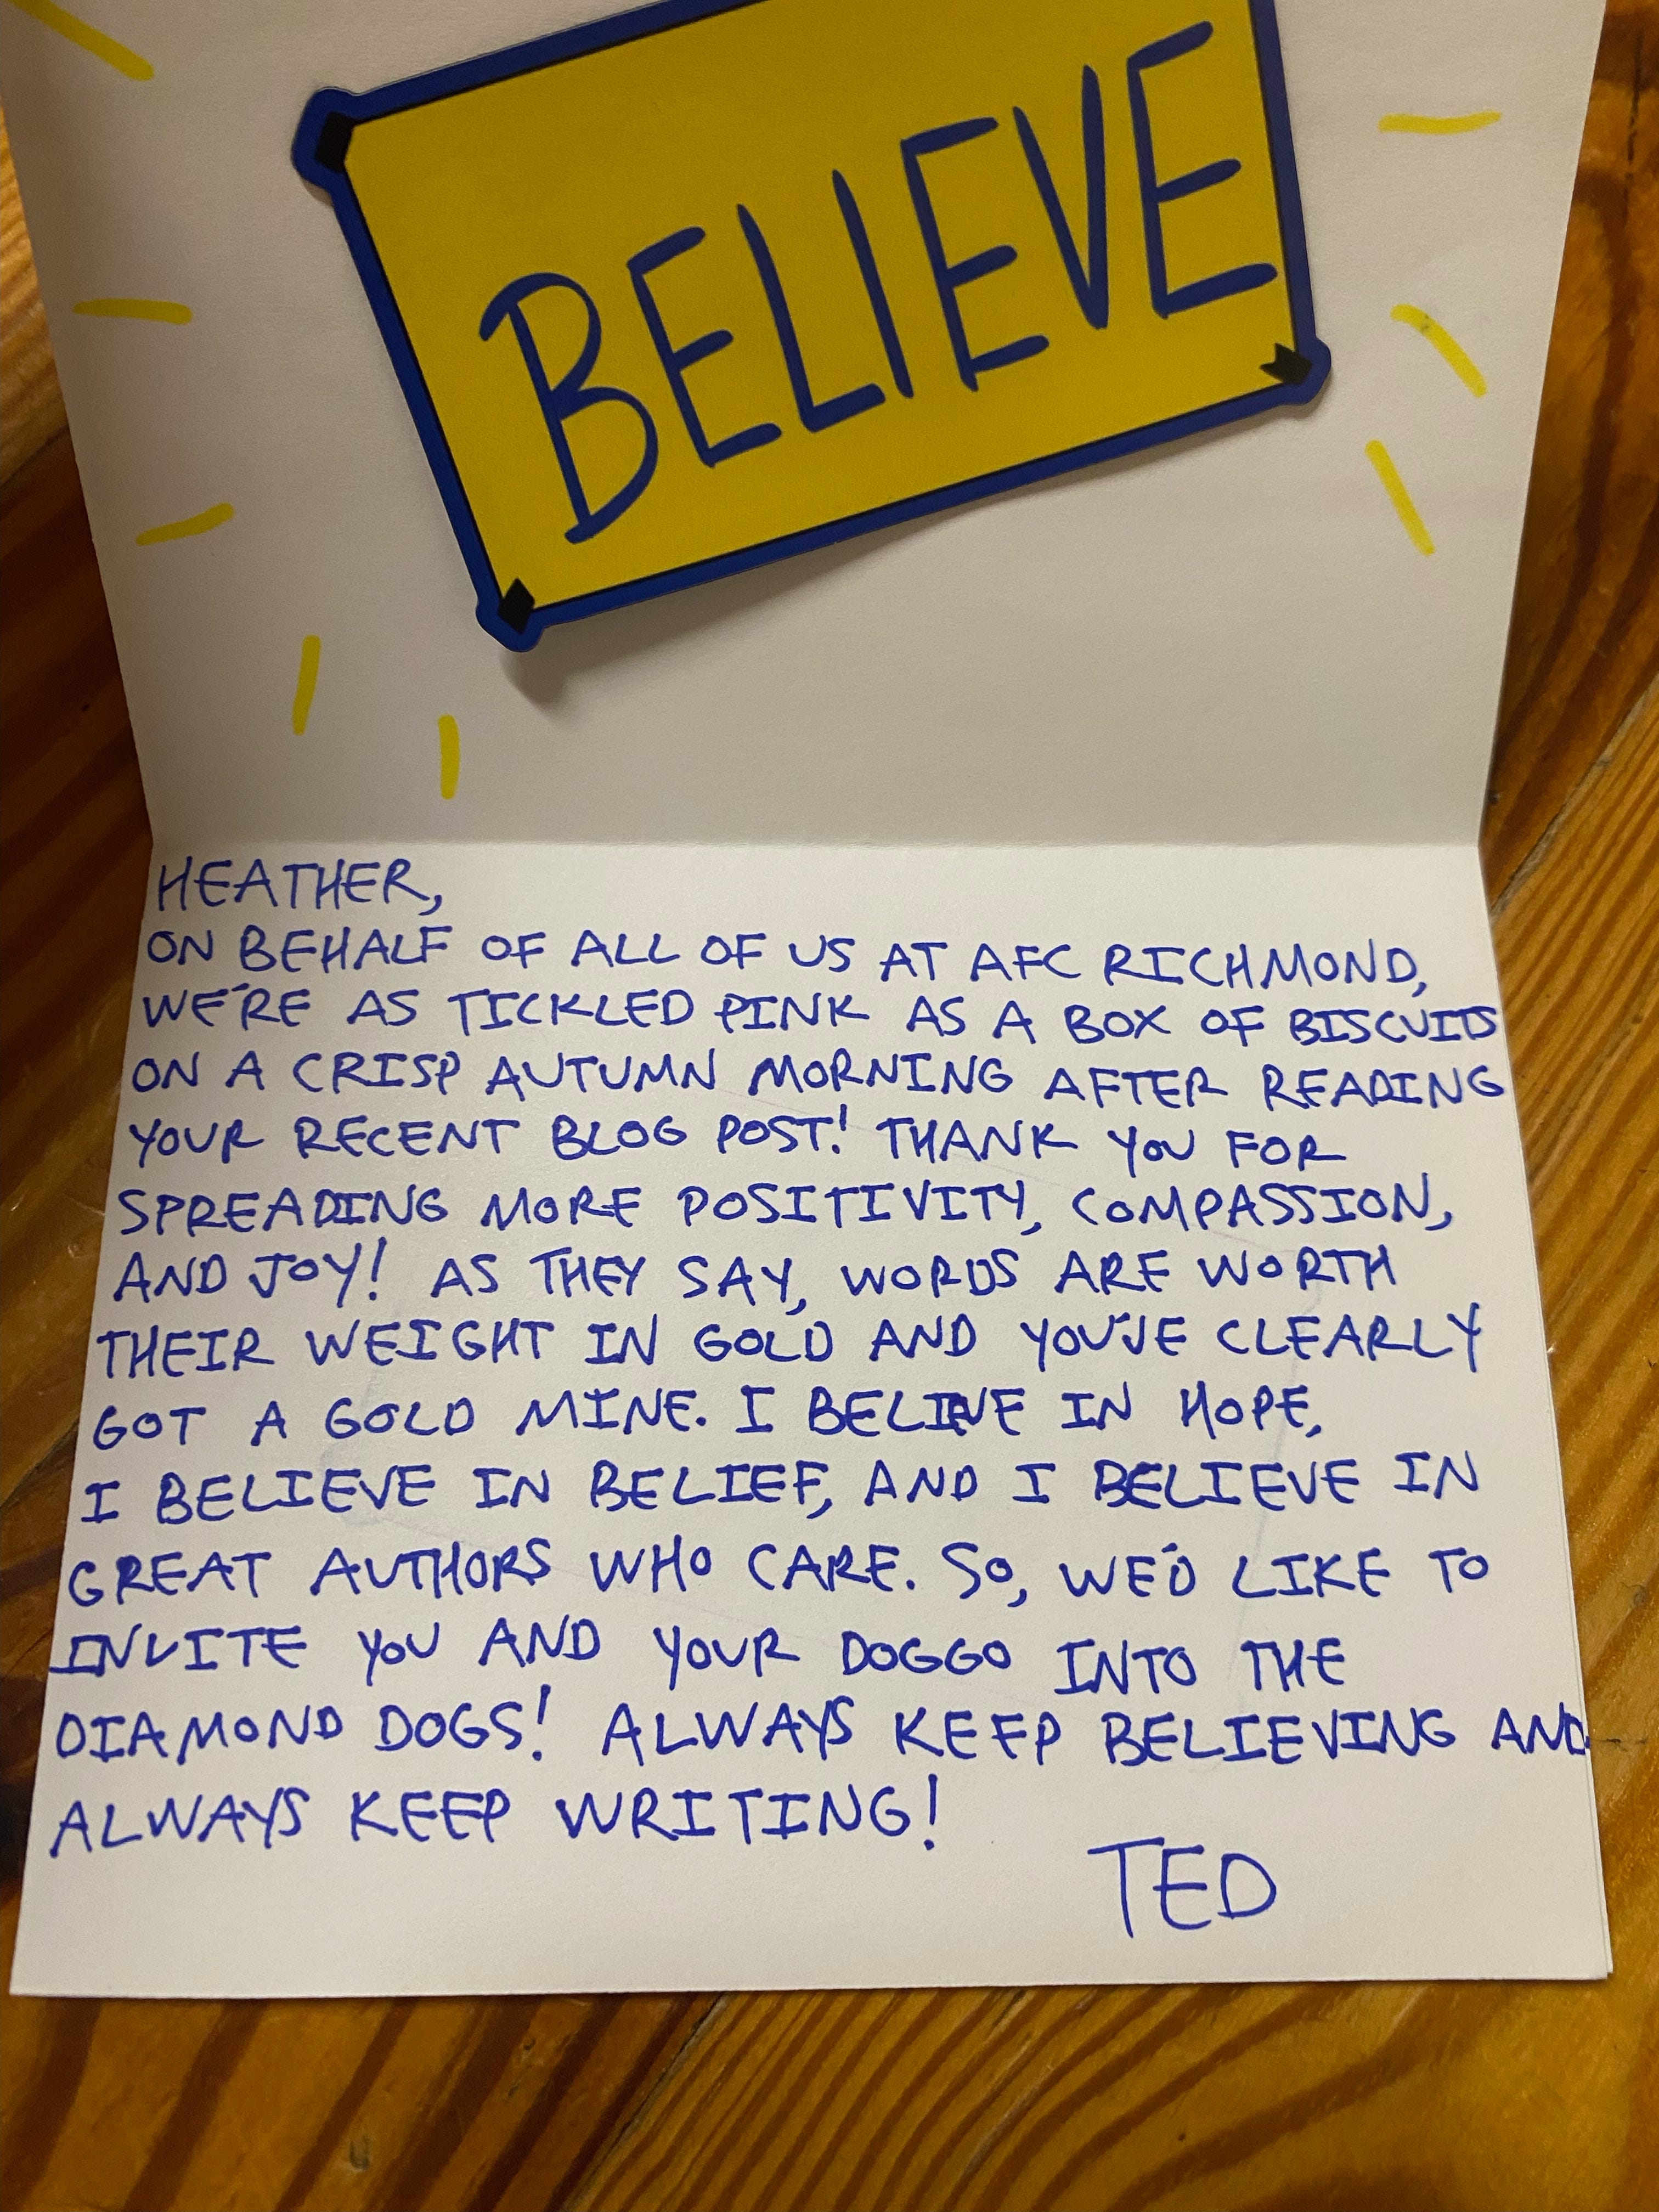 BELIEVE
HEATHER,
ON BEHALF OF ALL OF US AT AFC RICHMOND,
WE'RE AS TICKLED PINK AS A BOX OF BISCUITS
ON A CRISP AUTUMN MORNING AFTER READING
YOUR RECENT BLOG POST! THANK YOU FOR
SPREADING MORE POSITIVITY, COMPASSION,
AND JOY! AS THEY SAY, WORDS ARE WORTH
THEIR WEIGHT IN GOLD AND YOU'VE CLEARLY
GOT A GOLD MINE. I BELIEVE IN HOPE,
I BELIEVE IN BELIEF, AND I BELIEVE IN
GREAT AUTHORS WHO CARE. SO, WE'D LIKE TO
INVITE YOU AND YOUR DOGGO INTO THE
DIAMOND DOGS! ALWAYS KEEP BELIEVING AND
ALWAYS KEEP WRITING!
TED